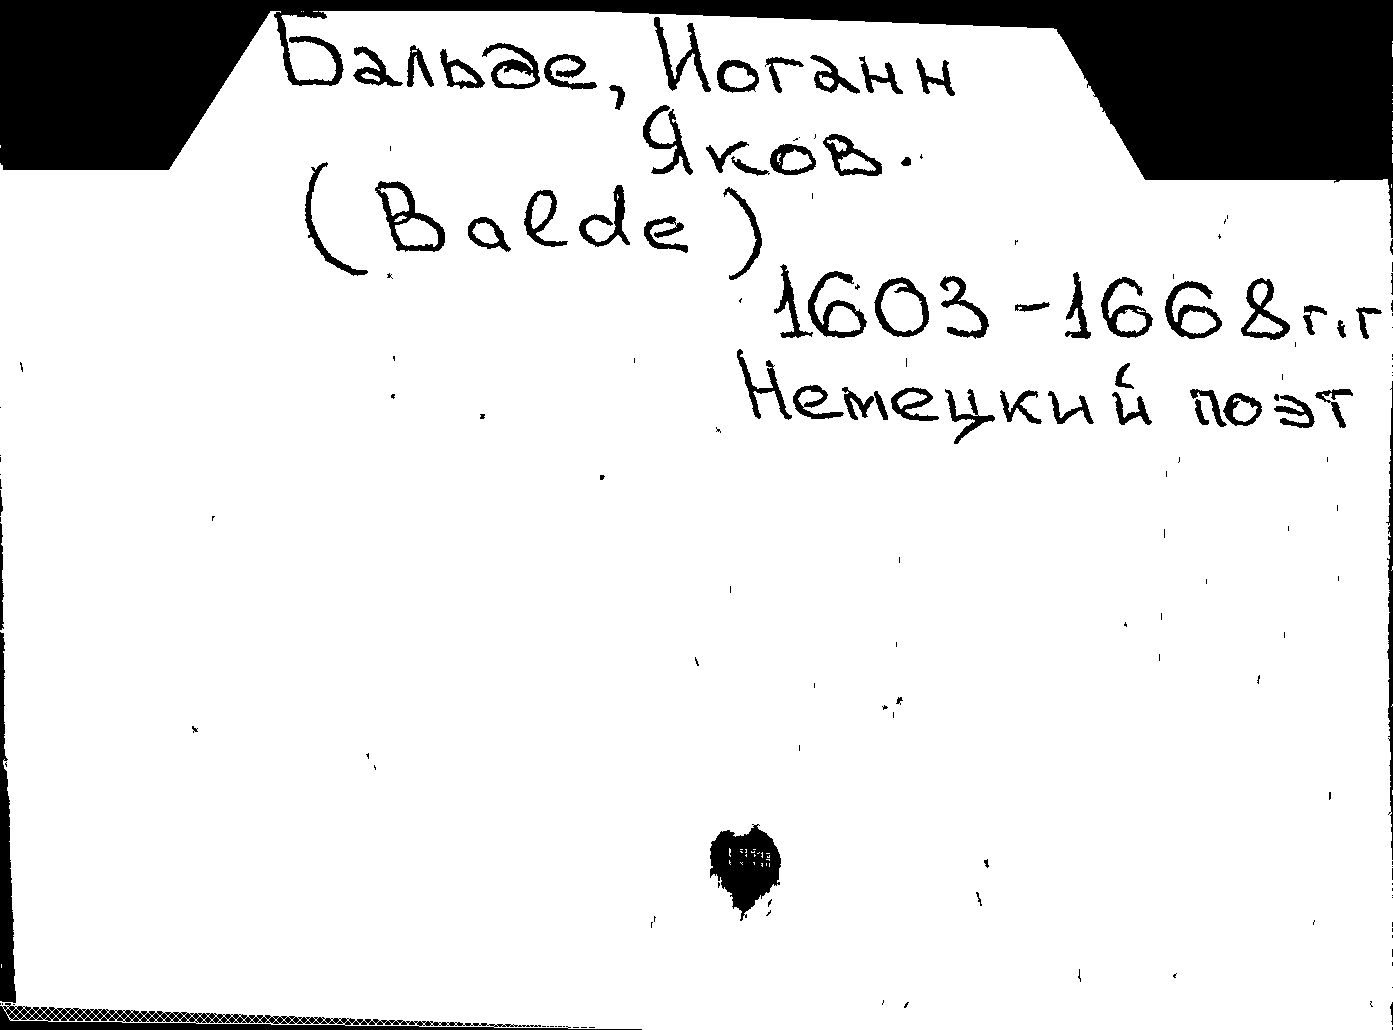 Бальде, Иоганн
Яков.
(Balde)
1603-1668 г.г
Немецкий поэт